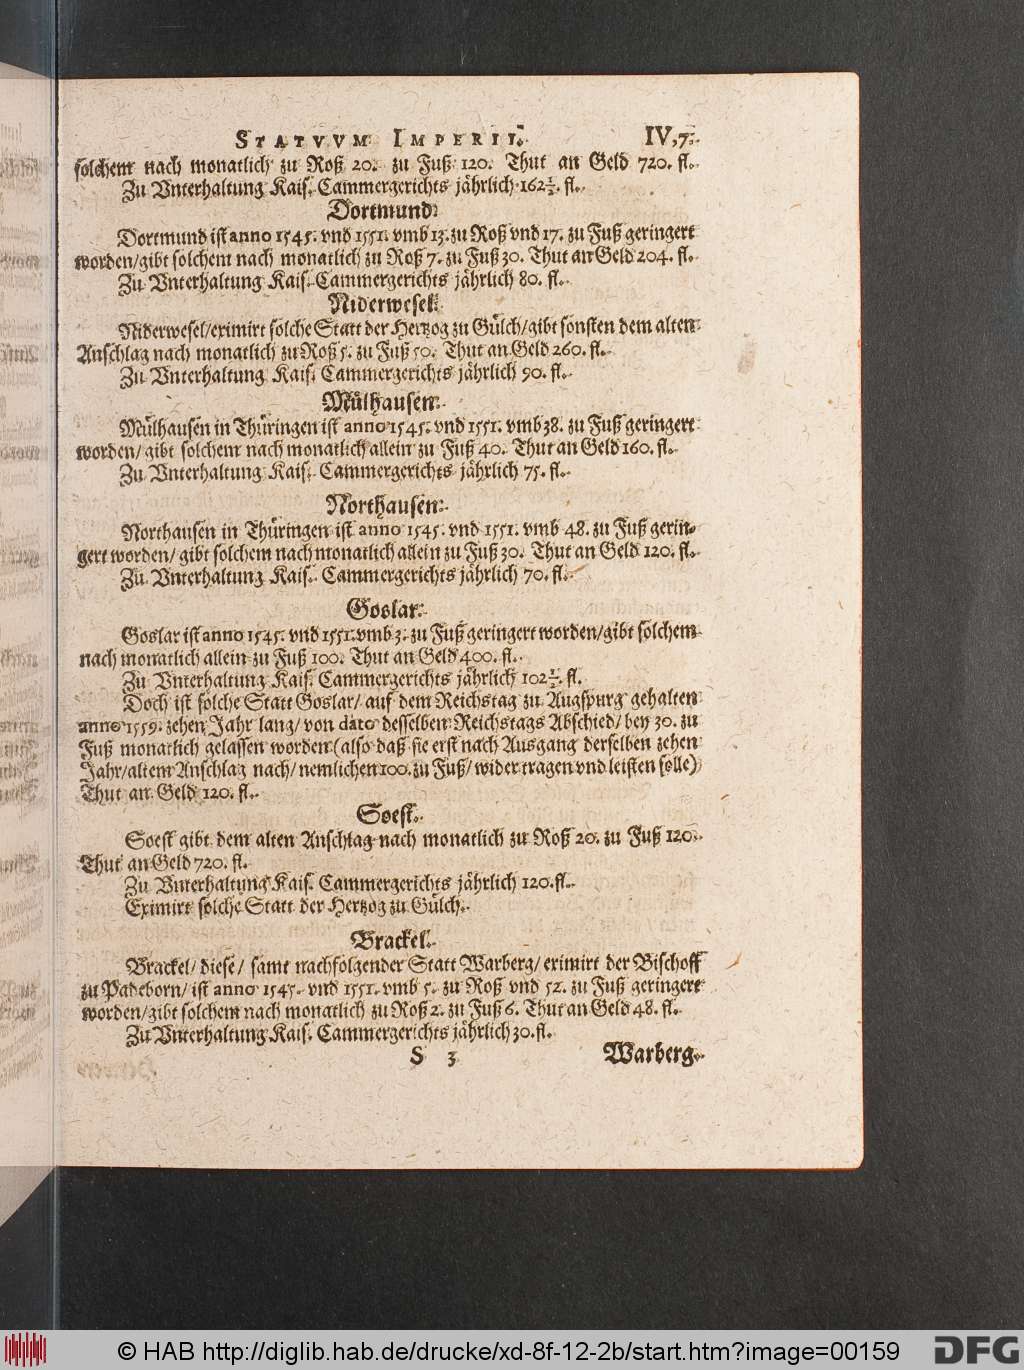 STATVVM IMPERII. IV, 7.
solchem nach monatlich zu Roß 20. zu Fuß 120. Thut an Geld 720. fl.
Zu Vnterhaltung Kais. Cammergerichts jährlich 162½. fl.
Dortmund.
Dortmund ist anno 1545. vnd 1551. vmb 13. zu Roß vnd 17. zu Fuß geringert
worden/gibt solchem nach monatlich zu Roß 7. zu Fuß 30. Thut an Geld 204. fl.
Zu Vnterhaltung Kais. Cammergerichts jährlich 80. fl.
Niderwesel.
Niderwesel/eximirt solche Statt der Hertzog zu Gülch/gibt sonsten dem alten
Anschlag nach monatlich zu Roß 5. zu Fuß 50. Thut an Geld 260. fl.
Zu Vnterhaltung Kais. Cammergerichts jährlich 90. fl.
Mülhausen.
Mülhausen in Thüringen ist anno 1545. vnd 1551. vmb 38. zu Fuß geringert
worden/gibt solchem nach monatlich allein zu Fuß 40. Thut an Geld 160. fl.
Zu Vnterhaltung Kais. Cammergerichts jährlich 75. fl.
Northausen.
Northausen in Thüringen ist anno 1545. vnd 1551. vmb 48. zu Fuß gerin-
gert worden/ gibt solchem nach monatlich allein zu Fuß 30. Thut an Geld 120. fl.
Zu Vnterhaltung Kais. Cammergerichts jährlich 70. fl.
Goslar.
Goslar ist anno 1545. vnd 1551. vmb 3. zu Fuß geringert worden/gibt solchem
nach monatlich allein zu Fuß 100. Thut an Geld 400. fl.
Zu Vnterhaltung Kais. Cammergerichts jährlich 102½. fl.
Doch ist solche Statt Goslar/ auf dem Reichstag zu Augspurg gehalten
anno 1559. zehen Jahr lang/ von dato desselben Reichstags Abschied/ bey 30. zu
Fuß monatlich gelassen worden (also daß sie erst nach Ausgang derselben zehen
Jahr/altem Anschlag nach/ nemlichen 100. zu Fuß/ wider tragen vnd leisten solle)
Thut an Geld 120. fl.
Soest.
Soest gibt dem alten Anschlag nach monatlich zu Roß 20. zu Fuß 120.
Thut an Geld 720. fl.
Zu Vnterhaltung Kais. Cammergerichts jährlich 120. fl.
Eximirt solche Statt der Hertzog zu Gülch.
Brackel.
Brackel/ diese/ samt nachfolgender Statt Warberg/ eximirt der Bischoff
zu Padeborn/ ist anno 1545. vnd 1551. vmb 5. zu Roß vnd 52. zu Fuß geringert
worden/gibt solchem nach monatlich zu Roß 2. zu Fuß 6. Thut an Geld 48. fl.
Zu Vnterhaltung Kais. Cammergerichts jährlich 30. fl.
S 3 Warberg.
© HAB http://diglib.hab.de/drucke/xd-8f-12-2b/start.htm?image=00159 DFG